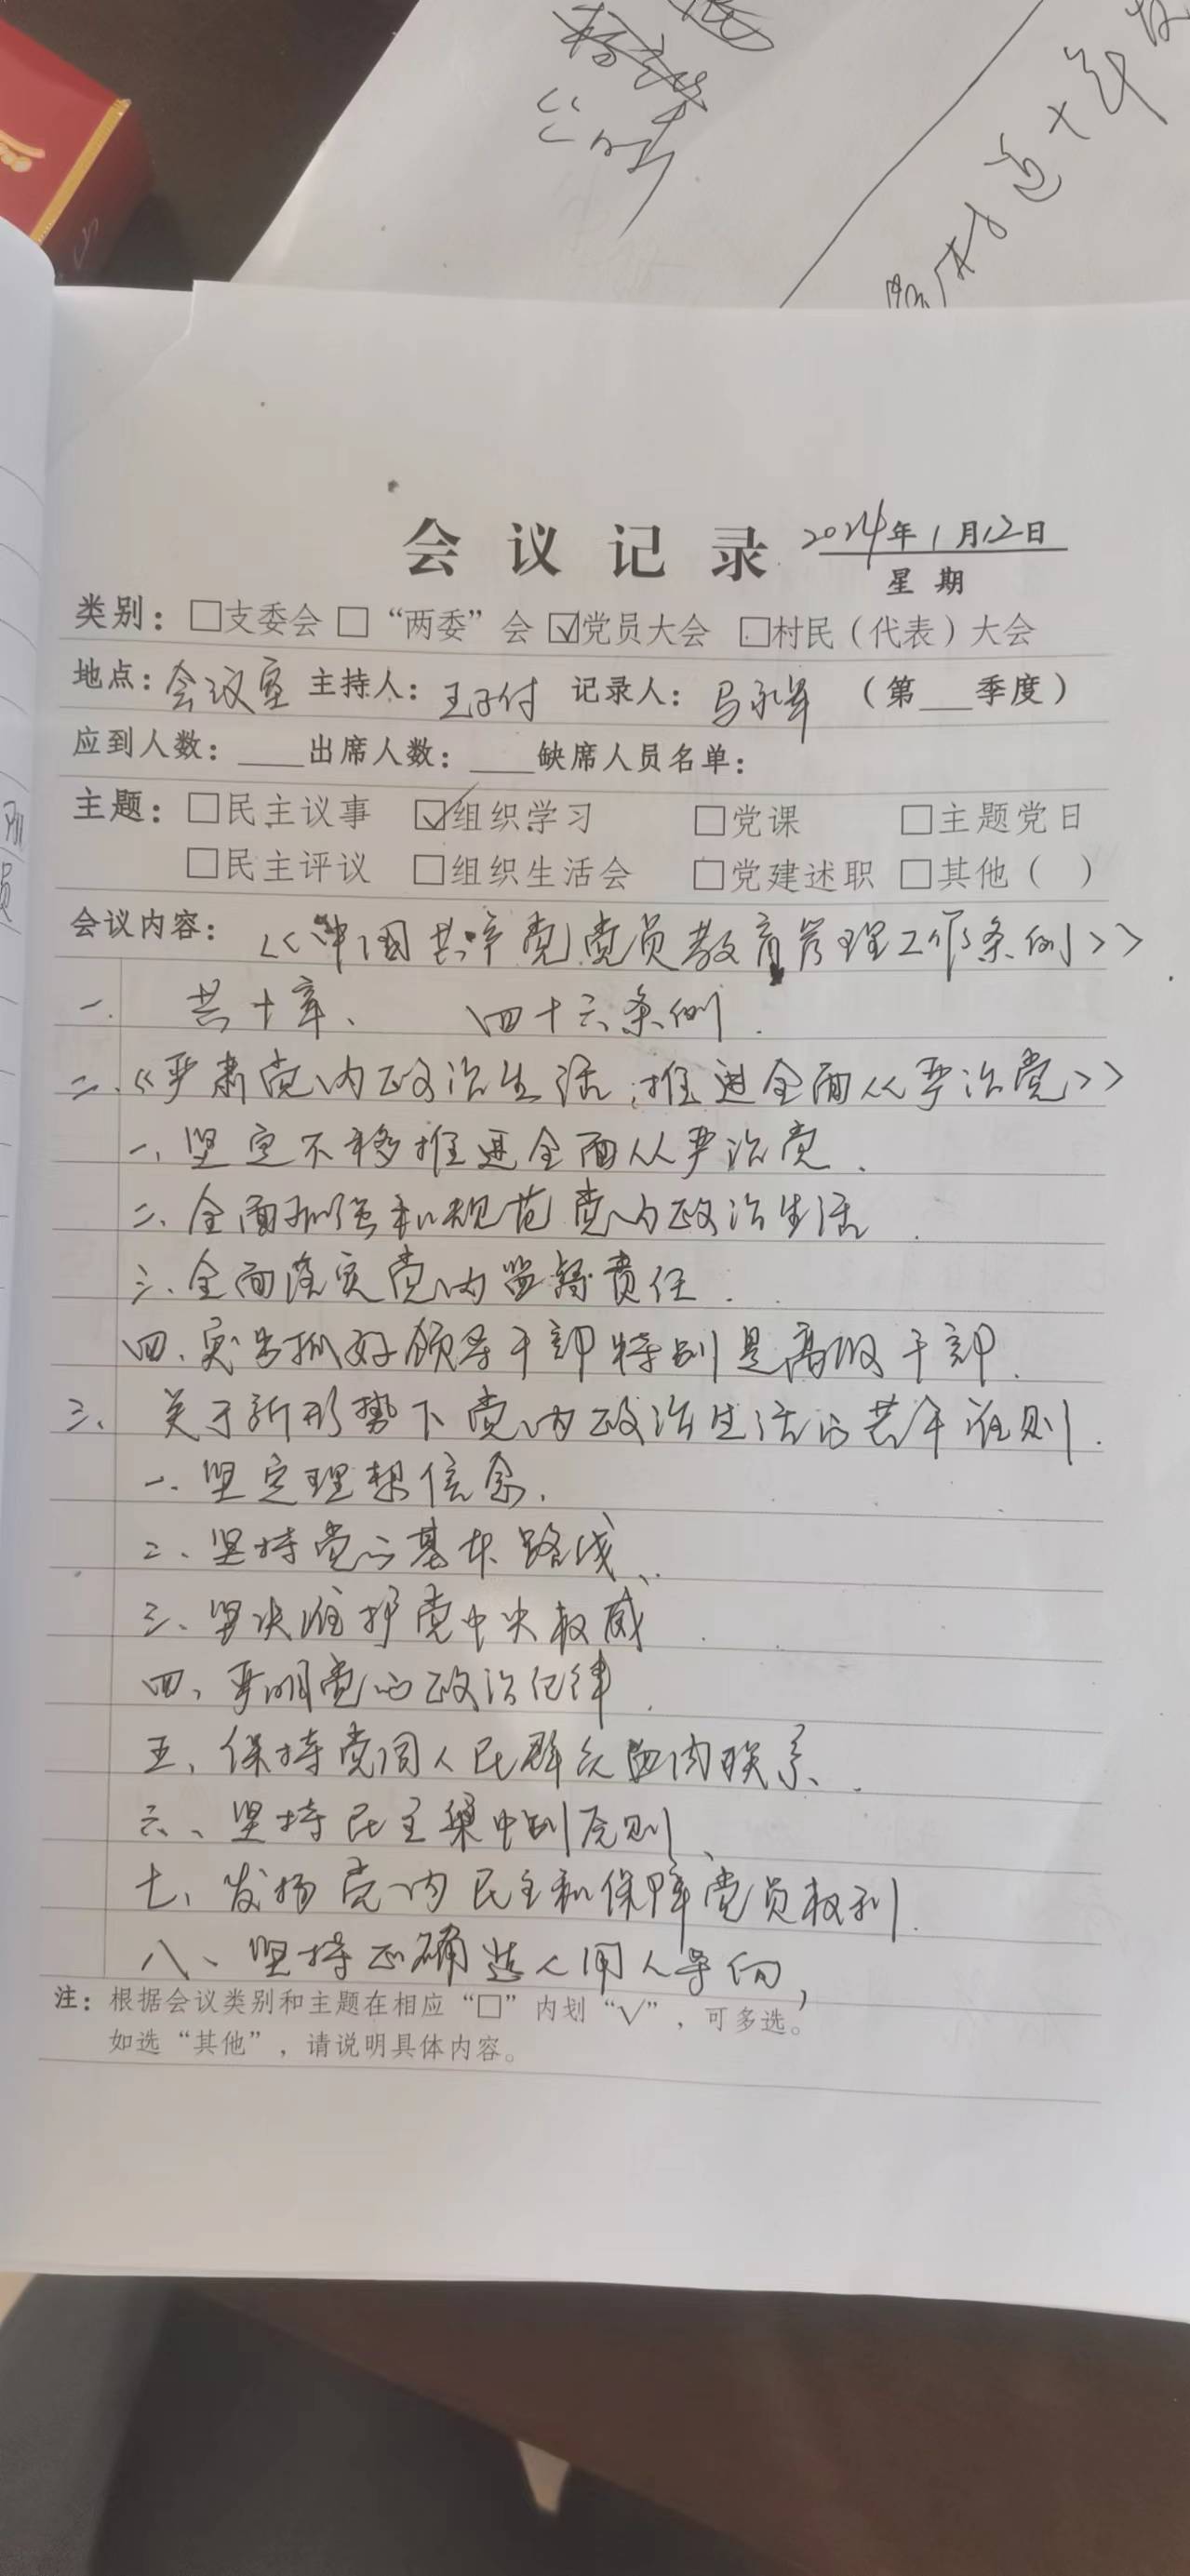 会议记录 2024年1月12日
星期
类别：□支委会 □“两委”会 ☑党员大会 □村民（代表）大会
地点：会议室 主持人：王子付 记录人： （第___季度）
应到人数：____出席人数：____缺席人员名单：
主题：□民主议事 ☑组织学习 □党课 □主题党日
□民主评议 □组织生活会 □党建述职 □其他（ ）
会议内容：<<中国共产党党员教育管理工作条例>>
一. 共十章、 四十六条例.
二.《严肃党内政治生活,推进全面从严治党>>
一、坚定不移推进全面从严治党.
二、全面加强和规范党内政治生活.
三、全面落实党内监督责任.
四、突出抓好领导干部特别是高级干部.
三、 关于新形势下党内政治生活的若干准则.
一、坚定理想信念.
二、坚持党的基本路线、
三、坚决维护党中央权威
四、严明党的政治纪律.
五、保持党同人民群众血肉联系、
六、坚持民主集中制原则、
七、发扬党内民主和保障党员权利.
八、坚持正确选人用人导向,
注：根据会议类别和主题在相应“□”内划“√”，可多选。
如选“其他”，请说明具体内容。